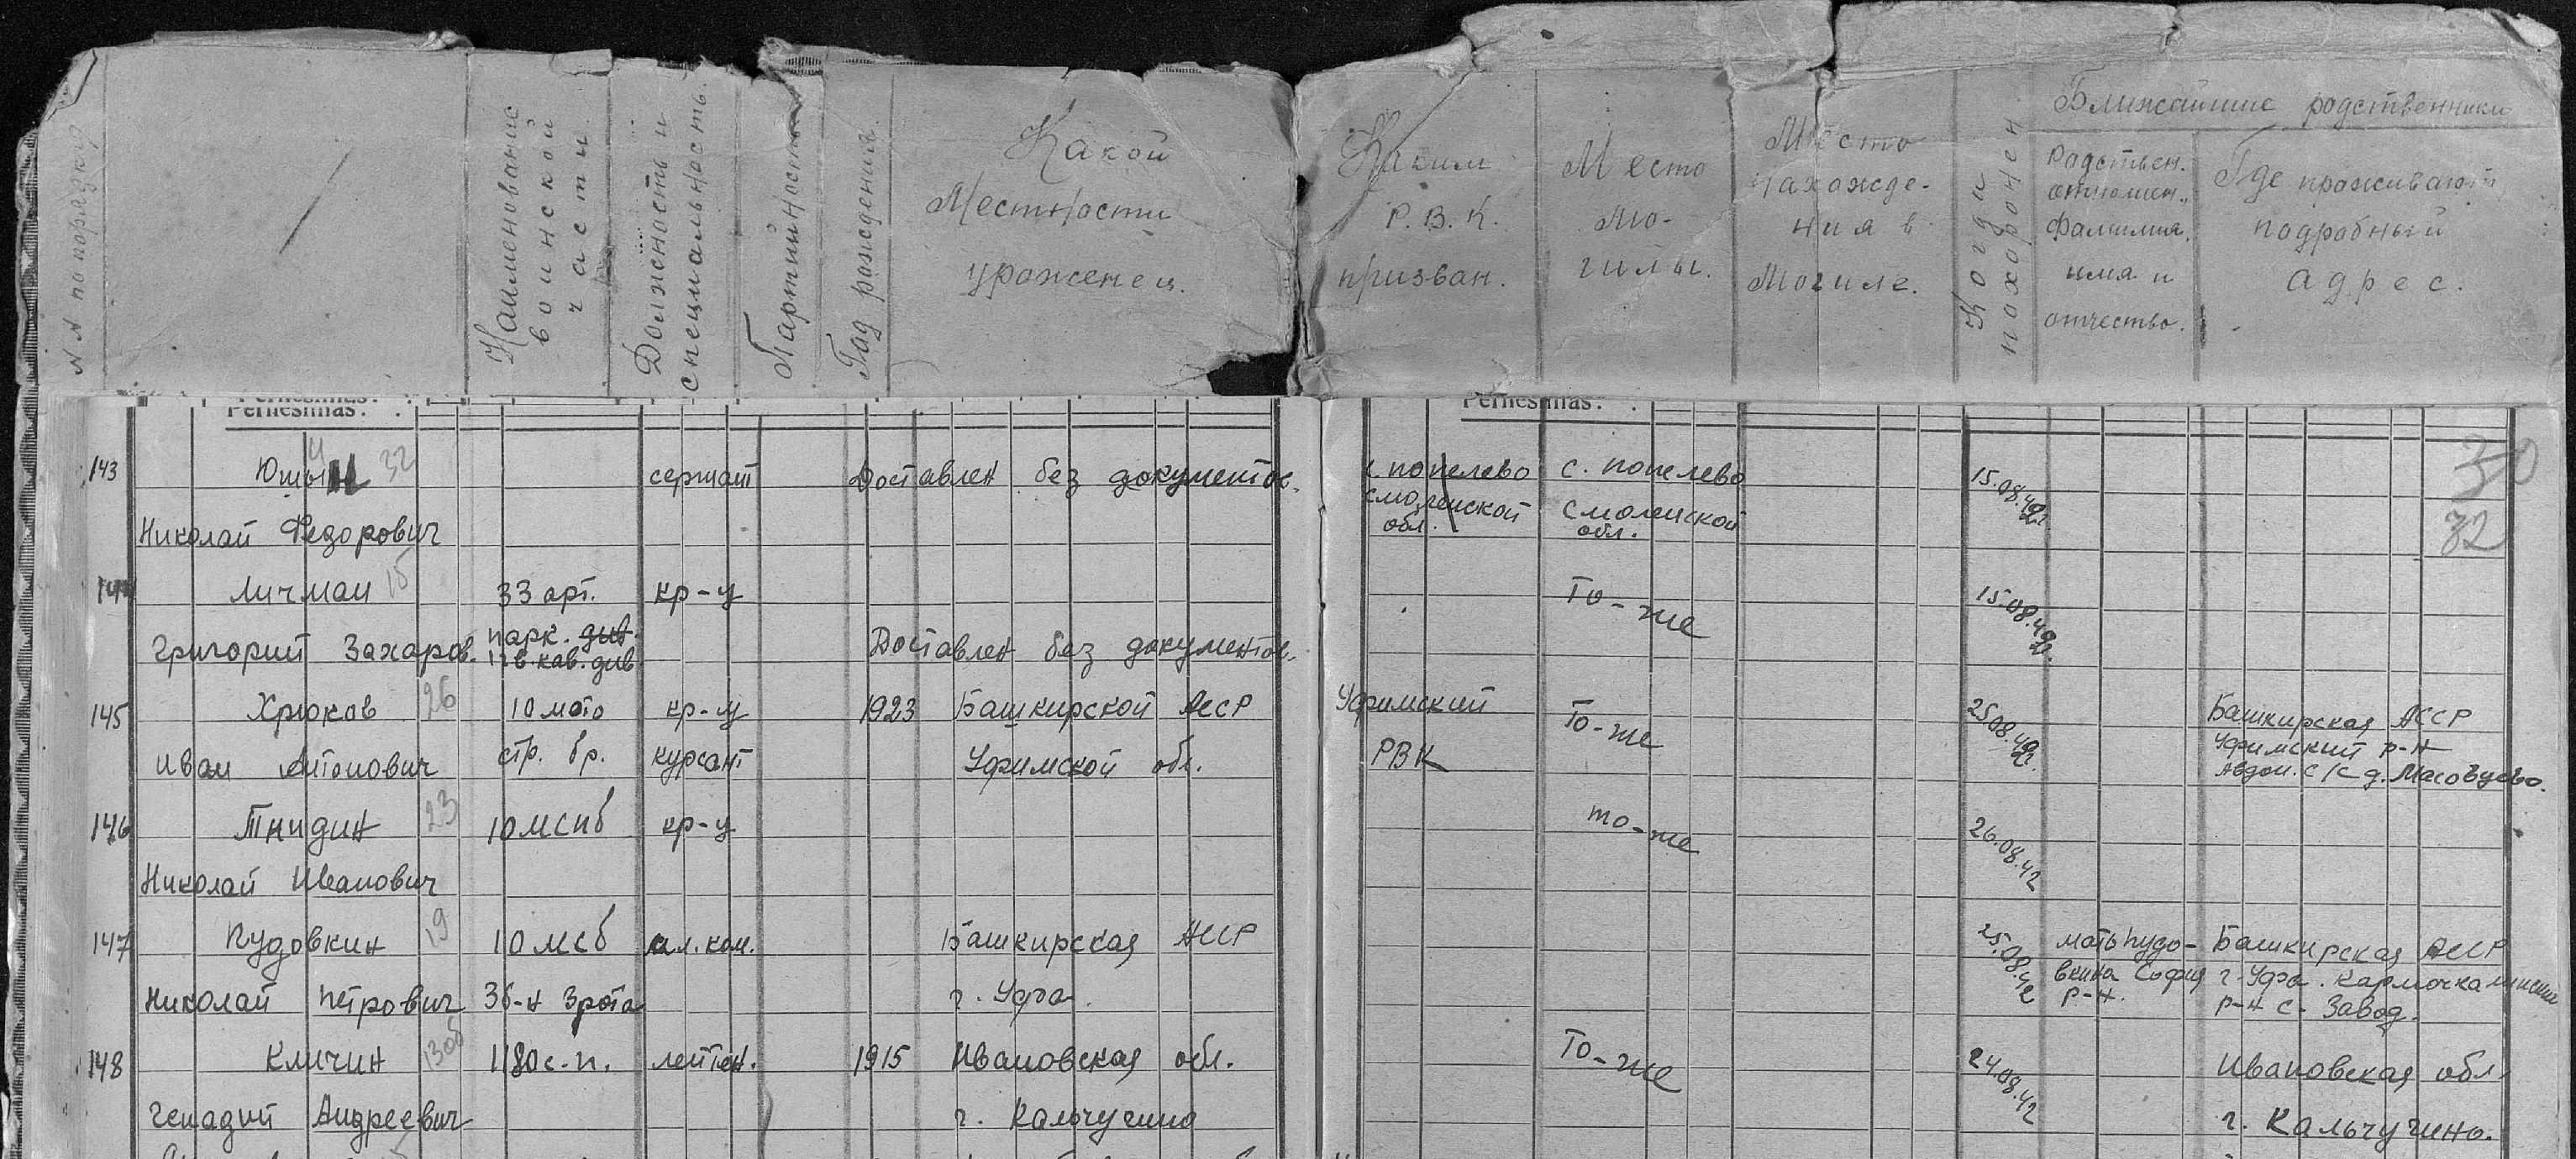 № № по порядку
Наименование воинской части
Должность и специальность.
Партийность
Год рождения.
Какой
Местности
уроженец.
Каким
Р.В.К.
призван.
Место
мо-
гилы.
Место
нахожде-
ния в
могиле.
Когда похоронен
Ближайшие родственники
Родствен.
отношен.,
фамилия,
имя и
отчество.
Где проживают
подробный
адрес.
Pernešimas: Pernešimas:
143 32 сержант Доставлен без документов. с. попелево с. попелево 15.08.42 30
смоленской смоленской
обл. обл.
Николай Федорович 32
144 Личман 15 33 арт. кр-ц То-же 15.08.42.
парк. див.
Григорий Захаров. 1 гв. кав. див Доставлен без документов.
145 Хрюков 26 10 мото кр-ц 1923 Башкирской АССР Уфимский То-же 25.08.42. Башкирская АССР
Иван Антонович стр. бр. курсант Уфимской обл. РВК Уфимский р-н
Авдон. с/с д.
146 23 10 МСИб кр-ц то-же 26.08.42
Николай Иванович
147 Пудовкин 19 10 мсб мл. ком. Башкирская АССР 25.08.42 мать Пудо- Башкирская АССР
Николай Петрович 3б-н 3рота г. Уфа. вкина София г. Уфа.
р-н. р-н с. Завод.
148 Кличин 1180 с.п. лейтен. 1915 Ивановская обл. То-же 24.08.42 Ивановская обл.
Генадий Андреевич г. Кальчугино г. Кальчугино.